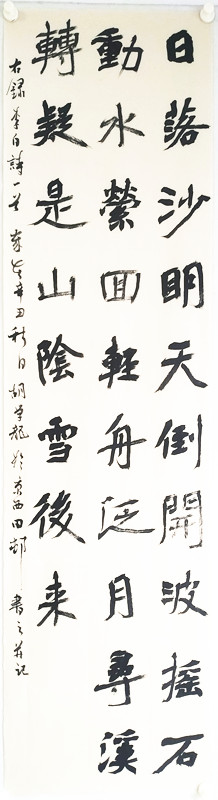 日落沙明天倒開波搖石
動水縈回輕舟泛月尋溪
轉疑是山陰雪後来
右録李白詩一首 辛丑秋日 胡 龍於京西田邨 書之并記